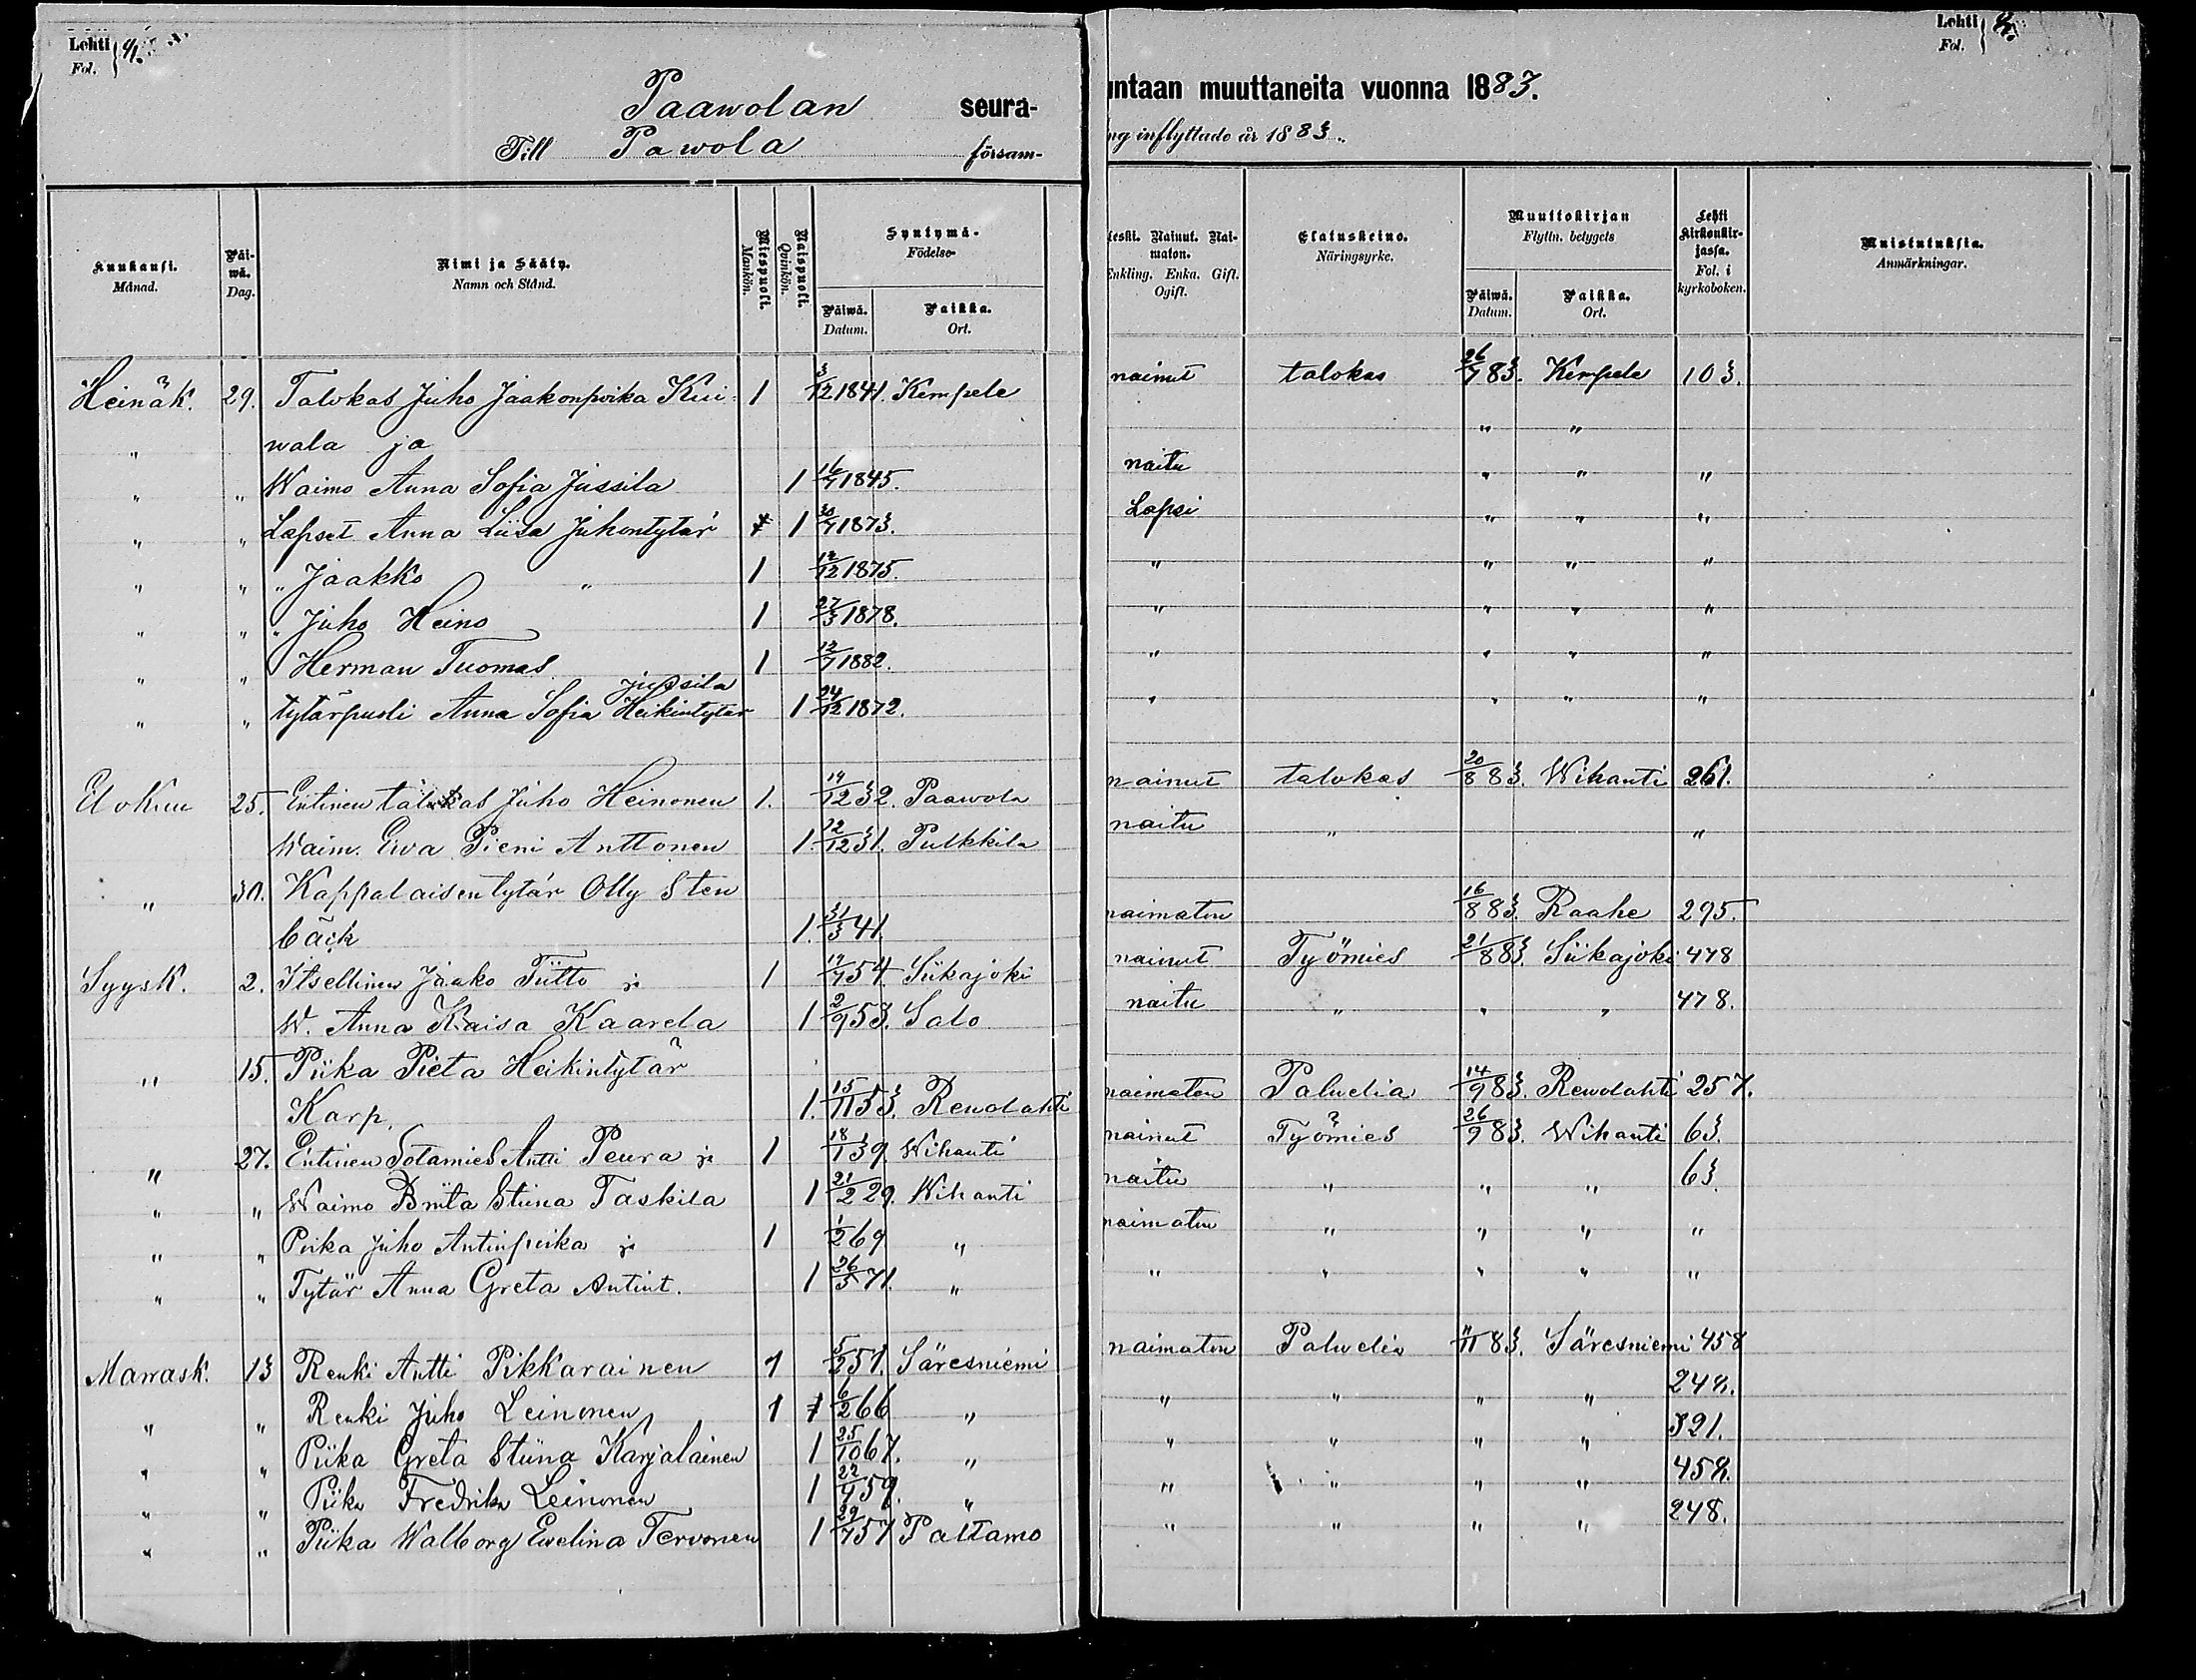 Lehti Fol. 4.
Lehti Fol. 4.
Paawolan seura-
ntaan muuttaneita vuonna 1883.
Till Pawola församˍ
ng inflyttade år 1883.
Kuukausi. Månad.
Päiwä. Dag.
Nimi ja Sääty. Namn och Stånd.
Miespuoli. Mankön.
Naispuoli. Qvinkön.
Syntymä- Födelse-
Päiwä. Datum.
Paikka. Ort.
leski. Nainut. Naimaton. Enkling. Enka. Gift. Ogift.
Elatuskeino. Näringsyrke.
Muuttokirjan Flyttn. betygets
Päiwä. Datum.
Paikka. Ort.
Lehti kirkonkirjassa. Fol. i kyrkoboken.
Muistutuksia. Anmärkningar.
Heinäk. 29. Talokas Juho Jaakonpoika Kui- 1 3/12 1841. Kempele nainut talokas 26/7 83. Kempele 103.
" wala ja " "
" " Waimo Anna Sofia Jussila 1 16/7 1845. naitu " " "
" " Lapset Anna Liisa Juhontytär 1 30/7 1873. Lapsi " " "
" " " Jaakko " 1 12/12 1875. " " " "
" " " Juho Heino 1 27/3 1878. " " " "
" " Herman Tuomas 1 12/7 1882. " " " "
jussila
" " tytärpuoli Anna Sofia Heikintytär 1 24/12 1872. " " " "
Elokuu 25. Entinen talokas Juho Heinonen 1. 19/12 32. Paawola nainut talokas 20/8 83. Wihanti 261.
Waim. Ewa Pieni Anttonen 1. 12/12 31. Pulkkila naitu " "
" 30. Kappalaisentytär Olly Sten
bäck 1. 31/3 41. naimaton 16/8 83. Raahe 295.
Syysk. 2. Itsellinen Jaako Tiitto ja 1 17/7 54. Siikajoki nainut Työmies 21/8 83. Siikajoki 478
W. Anna Kaisa Kaarela 1 2/9 53. Salo naitu " " " 478.
" 15. Piika Pieta Heikintytär
Karp. 1. 15/11 53. Rewolahti naimaton Palwelia 14/9 83. Rewolahti 257.
" 27. Entinen Sotamies Antti Peura ja 1 18/1 39. Wihanti nainut Työmies 26/9 83. Wihanti 63.
" " Waimo Briita Stiina Taskila 1 21/2 29. Wihanti naitu " " " 63.
" " Poika Juho Antinpoika ja 1 1/2 69 " naimaton " " " "
" " Tytär Anna Greta Antint. 1 26/5 71. " " " " " "
Marrask. 13 Renki Antti Pikkarainen 1 5/2 51. Säresniemi naimaton Palwelia 11/11 83. Säresniemi 458
" " Renki Juho Leinonen 1 6/2 66 " " " " " 248.
" " Piika Greta Stiina Karjalainen 1 25/10 67. " " " " " 321.
" " Piika Fredrika Leinonen 1 22/4 59. " " " " " 458.
" " Piika Walborg Ewelina Tervonen 1 29/7 57 Paltamo " " " " 248.